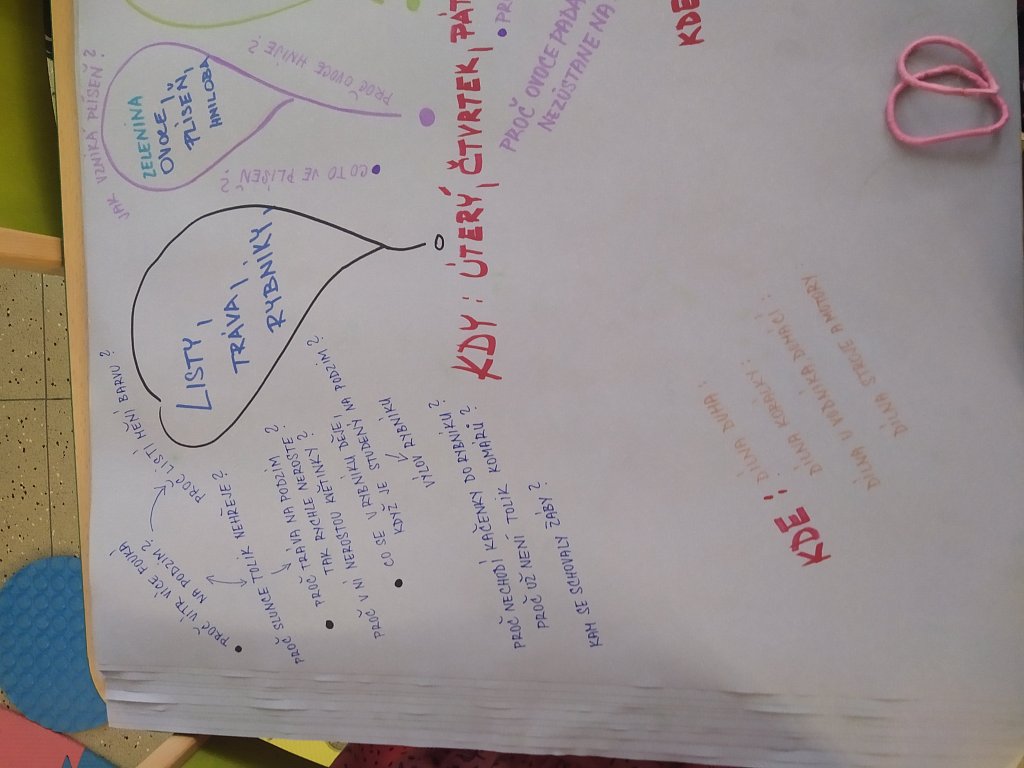 LISTY,
TRÁVA,
RYBNÍKY
PROČ LISTÍ MĚNÍ BARVU?
PROČ VÍTR VÍCE FOUKÁ
NA PODZIM?
PROČ SLUNCE TOLIK NEHŘEJE?
PROČ TRÁVA NA PODZIM
TAK RYCHLE NEROSTE?
PROČ V NÍ NEROSTOU KETINKY?
CO SE V RYBNÍKU DĚJE
KDYŽ JE STUDENÝ NA PODZIM?
VÝLOV RYBNÍKU
PROČ NECHODÍ KAČENKY DO RYBNÍKU?
PROČ UŽ NENÍ TOLIK KOMARŮ?
KAM SE SCHOVALY ŽÁBY?
ZELENINA
OVOCE,
PLÍSEŇ,
HNILOBA
JAK VZNIKÁ PLÍSEŇ?
PROČ OVOCE HNIJE?
CO TO JE PLÍSEŇ?
KDY: ÚTERÝ, ČTVRTEK, PÁT
PR
PROČ OVOCE PADÁ
NEZŮSTANE NA
KDE
KDE:
DÍLNA DUHA:
DÍLNA KORÁLKY:
DÍLNA U VODNÍKA, DOMÁCÍ:
DÍLNA STROJE A MOTORY